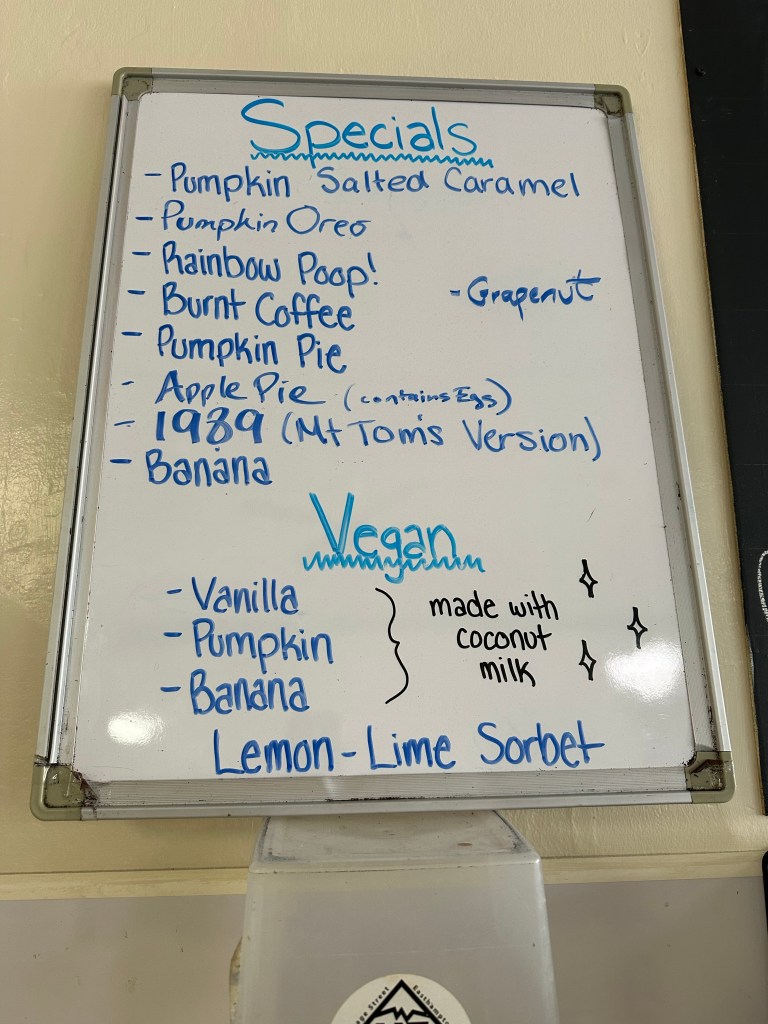 Specials
- Pumpkin Salted Caramel
- Pumpkin Oreo
- Rainbow Poop!
- Burnt Coffee
- Grapenut
- Pumpkin Pie
- Apple Pie (contains Egs)
- 1989 (Mt Tom's Version)
- Banana
Vegan
- Vanilla
- Pumpkin
- Banana
made with
coconut
milk
Lemon-Lime Sorbet